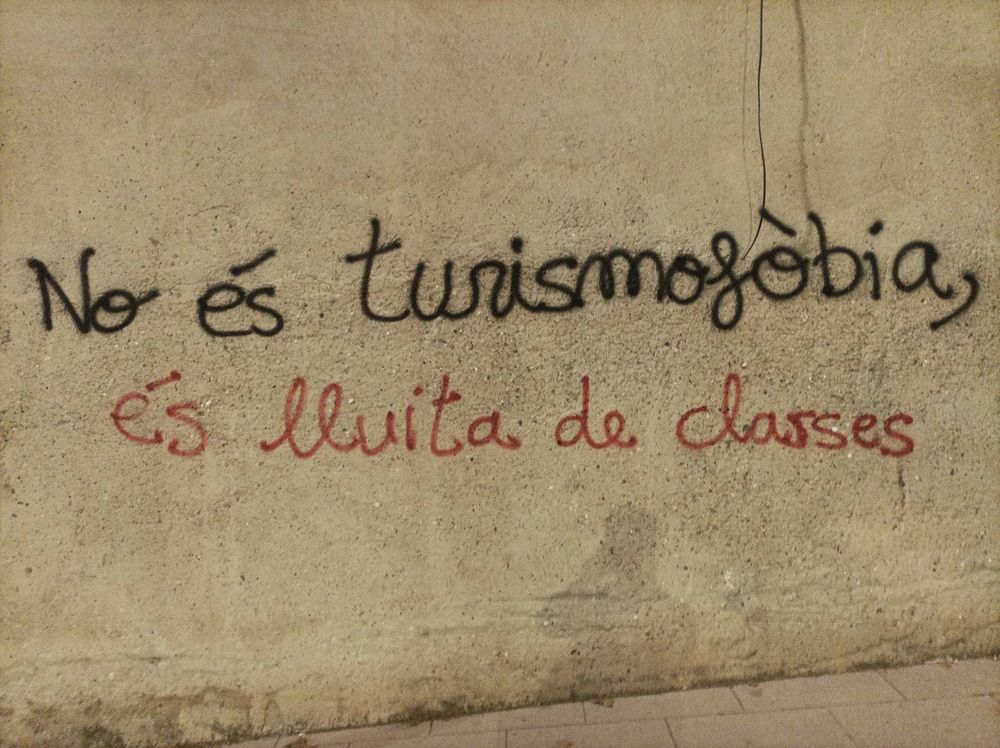 No és turismofòbia,
és lluita de classes